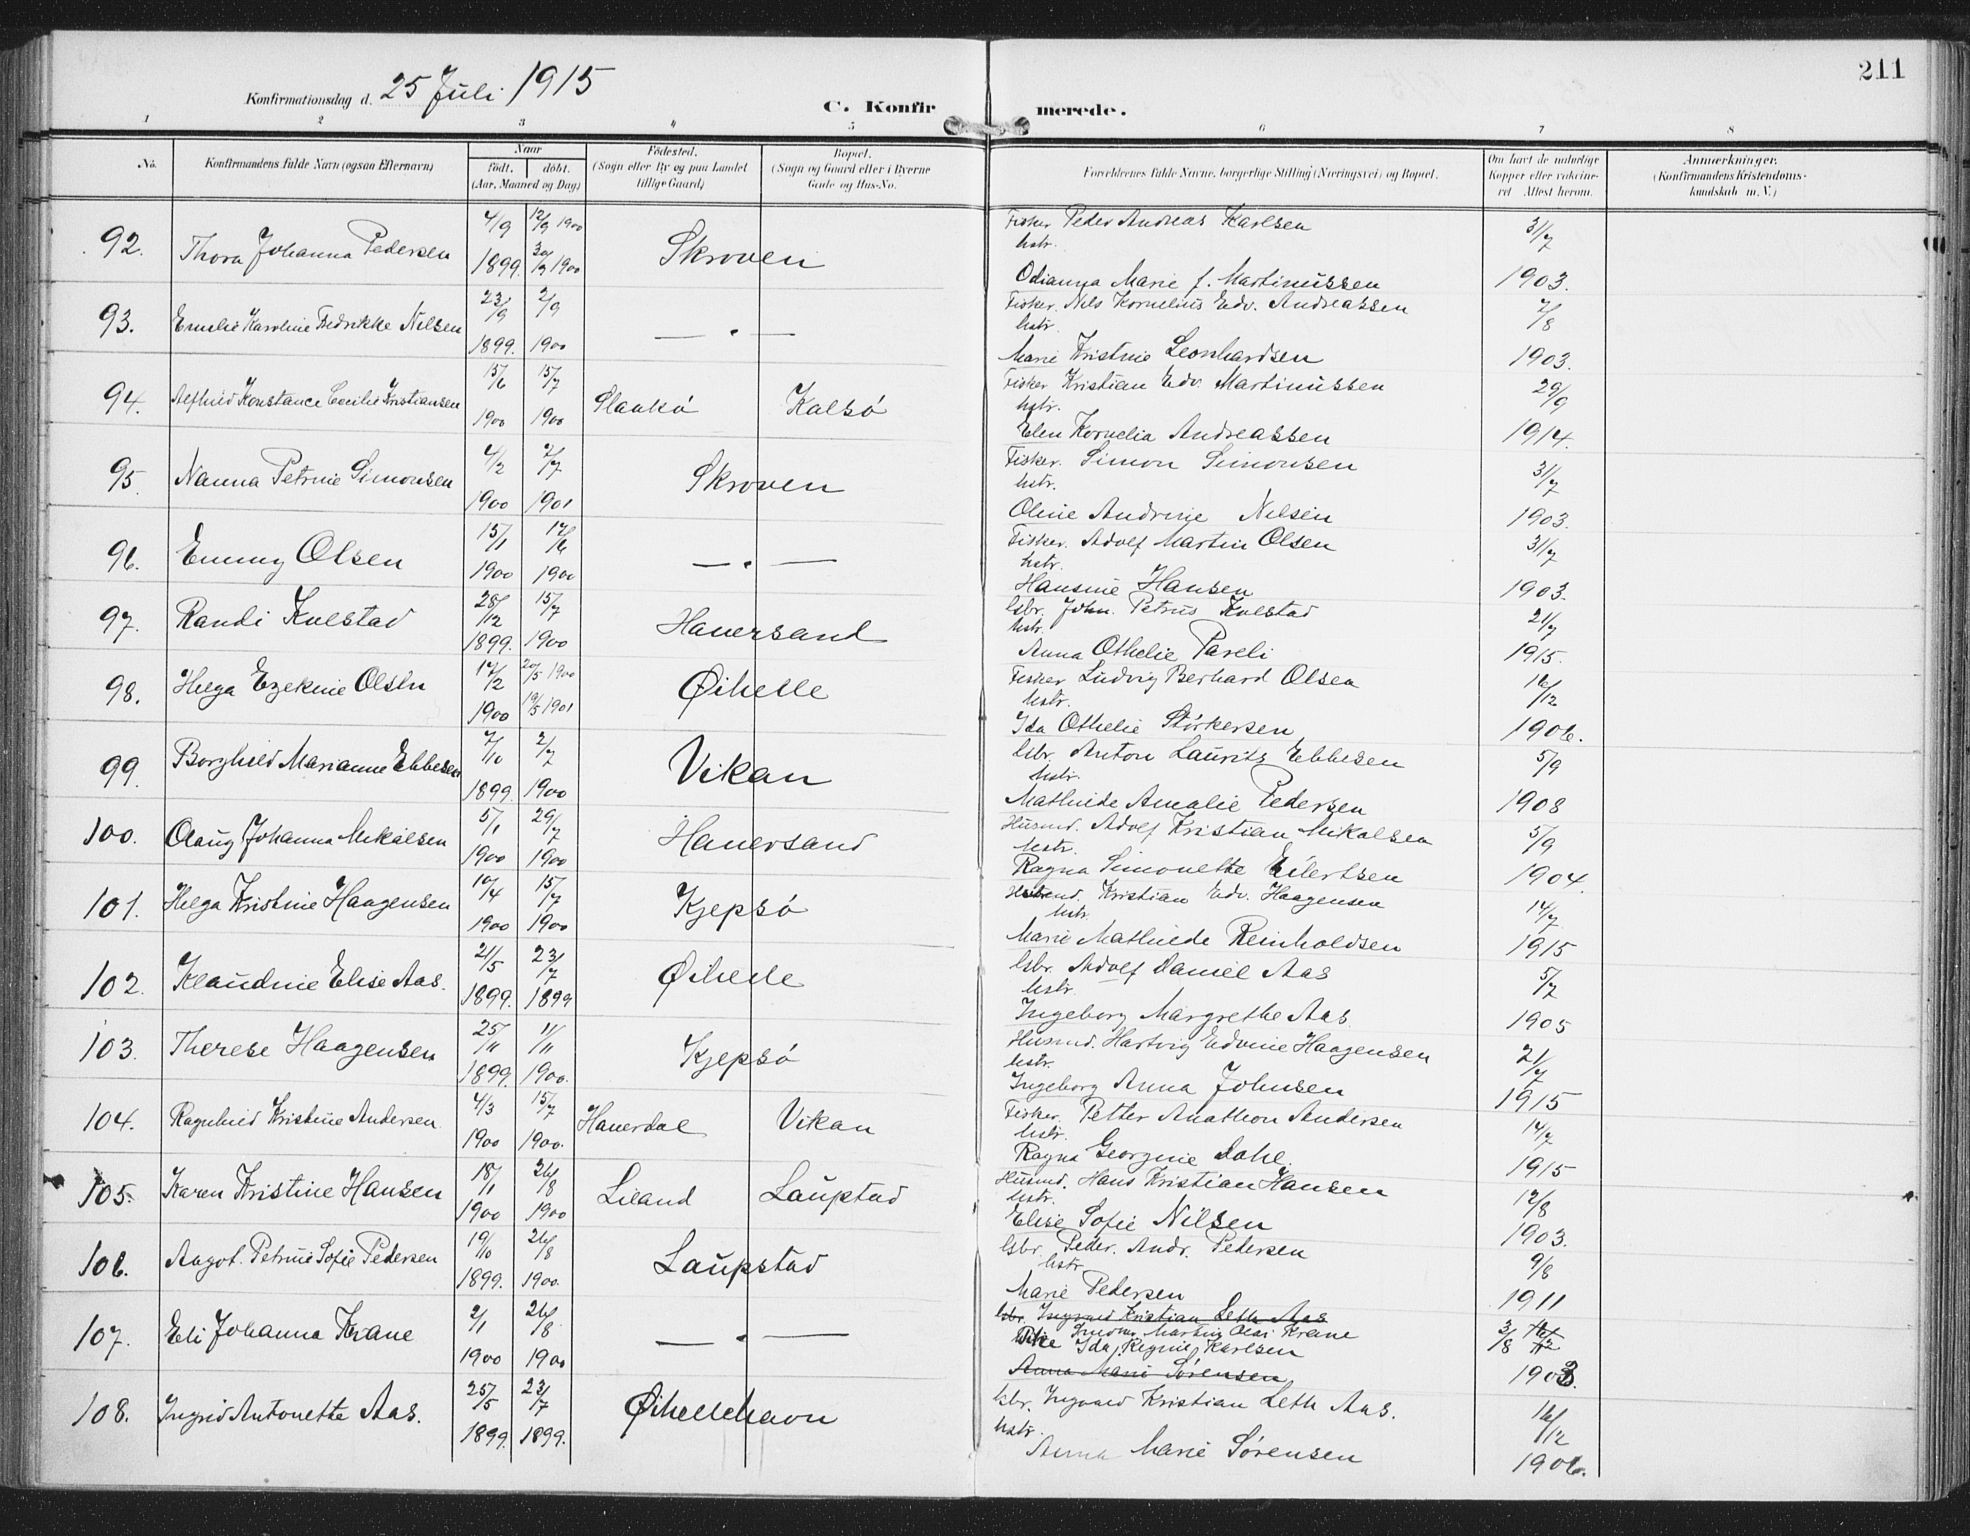 211
Konfirmationsdag d. 25 Juli 1915
C. Konfirmerede.
1 2 3 4 5 6 7 8
No. Konfirmandens fulde Navn (ogsaa Efternavn) Naar födt. döbt. (Aar, Maaned og Dag) Födested. (Sogn eller By og paa Landet tillige Gaard) Bopæl. (Sogn og Gaard eller i Byerne Gade og Hus-No. Forældrenes fulde Navne, borgerlige Stilling (Næringsvei) og Bopæl. Om havt de naturlige Kopper eller vakcineret. Attest herom. Anmærkninger. (Konfirmandens Kristendomskundskab m. V.)
92. Thora Johanna Pedersen 4/9 1899. 12/9 1900 30/9 1900 Skroven Fisker Peder Andreas Karlsen 31/7
hstr. Odianna Marie f. Martinussen 1903.
93. Emelie Karoline Fredrikke Nilsen 23/9 1899. 2/9 1900 — " — Fisker. Nils Kornelius Edv. Andreassen 7/8
hstr. Marie Kristine Leonhardsen 1903.
94. Alfhild Konstance Cecilie Kristiansen 15/6 1900 15/7 1900 Slaakö Kalsö Fisker Kristian Edv. Martinussen 29/9
hstr. Elen Kornelia Andreassen 1914.
95. Nanna Petrine Simonsen 4/2 1900 7/7 1901 Skroven Fisker. Simon Simonsen 31/7
hstr. Oline Andrine Nilsen 1903.
96. Emmy Olsen 15/1 1900 17/6 1900 — " — Fisker. Adolf Martin Olsen 31/7
hstr. Hansine Hansen 1903.
97. Randi Kulstad 28/12 1899. 15/7 1900 Hanersand Gbr. John. Petrus Kulstad 21/7
hstr. Anna Othelie Pareli 1915.
98. Helga Ezekine Olsen 17/2 1900 20/5 1900 19/5 1901 Øihelle Fisker Ludvig Berhard Olsen 16/12
hstr. Ida Othelie Störkersen 1906.
99. Borghild Marianne Ebbesen 7/10 1899. 2/7 1900 Vikan Gbr. Anton Lauritz Ebbesen 5/9
hstr. Mathilde Amalie Pedersen 1908
100. Olaug Johanna Mikalsen 5/1 1900 29/7 1900 Hanersand Husmd. Adolf Kristian Mikalsen 5/9
hstr. Ragna Simonette Eilertsen 1904.
101. Helga Kristine Haagensen 10/4 1900 15/7 1900 Kjepsö Husmd. Kristian Edv. Haagensen 14/7
hstr. Marie Mathilde Reinholdsen 1915
102. Klaudine Elise Aas. 21/5 1899. 23/7 1899 Øihelle Gbr. Adolf Daniel Aas 5/7
hstr. Ingeborg Margrethe Aas 1905
103. Therese Haagensen 25/11 1899. 11/11 1900. Kjepsö Husmd. Hartvig Edvine Haagensen 21/7
hstr. Ingeborg Anna Johnsen 1915
104. Ragnhild Kristine Andersen 4/3 1900 15/7 1900. Hanerdal Vikan Fisker. Petter Anathon Andersen 14/7
hstr. Ragna Georgine Dahl. 1915
105. Karen Kristine Hansen 18/1 1900 26/8 1900 Liland Laupstad Husmd. Hans Kristian Hansen 12/8
hstr. Elise Sofie Nilsen 1903.
106. Aagot. Petrine Sofie Pedersen 19/10 1899. 26/8 1900. Laupstad Gbr. Peder. Andr. Pedersen 9/8
hstr. Marie Pedersen 1911
107. Eli Johanna Krane 2/1 1900 26/8 1900 — " — Gbr. Ingvard Kristian Leth Aas
Martin Olai Krane 3/8 16/12
Pike Ida Regine Karlsen
Anna Marie Sörensen 1903.
108. Ingrid Antonette Aas. 25/5 1899. 23/7 1899. Øihellehavn Gbr. Ingvard Kristian Leth Aas. 16/12
hstr. Anna Marie Sörensen 1906.